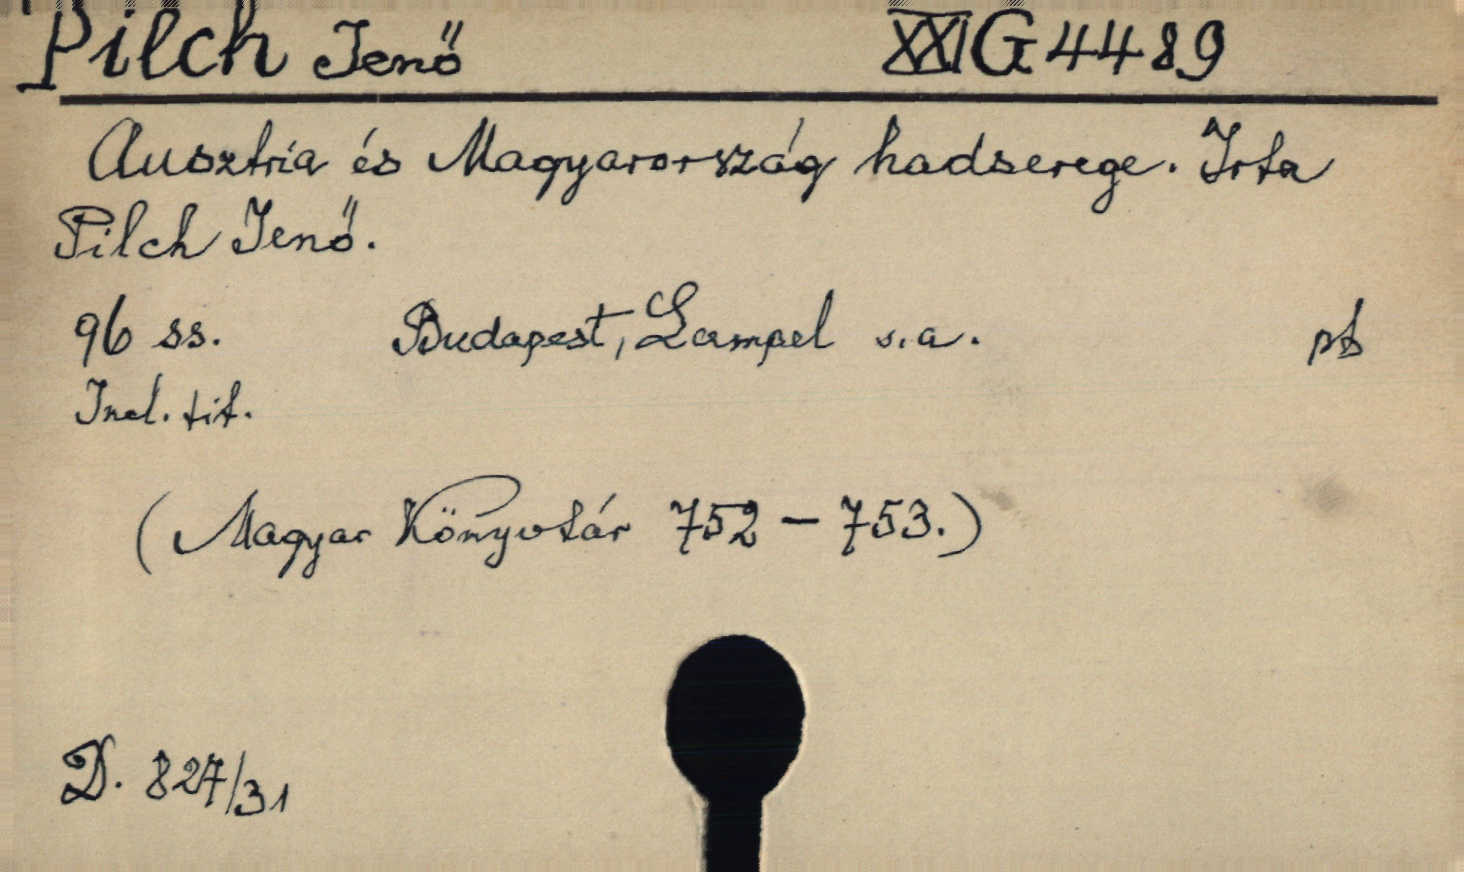 Pilch Jenő XXI G 4489
Ausztria és Magyarország hadserege. Irta
Pilch Jenő.
96 ss. Budapest, Lampel s.a. pb
Incl. tit.
(Magyar Könyvtár 752 – 753.)
D. 827/31